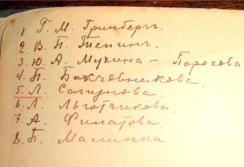 1 Г. М. Гринбергъ.
2 В. П. Тепин.
3. Ю. А. Мухина – Порохова
4. П. Бахчовникова.
5. Л. Сагунова.
6. Л. Льготчикова.
7. А. Филатова.
8. П. Малинка.